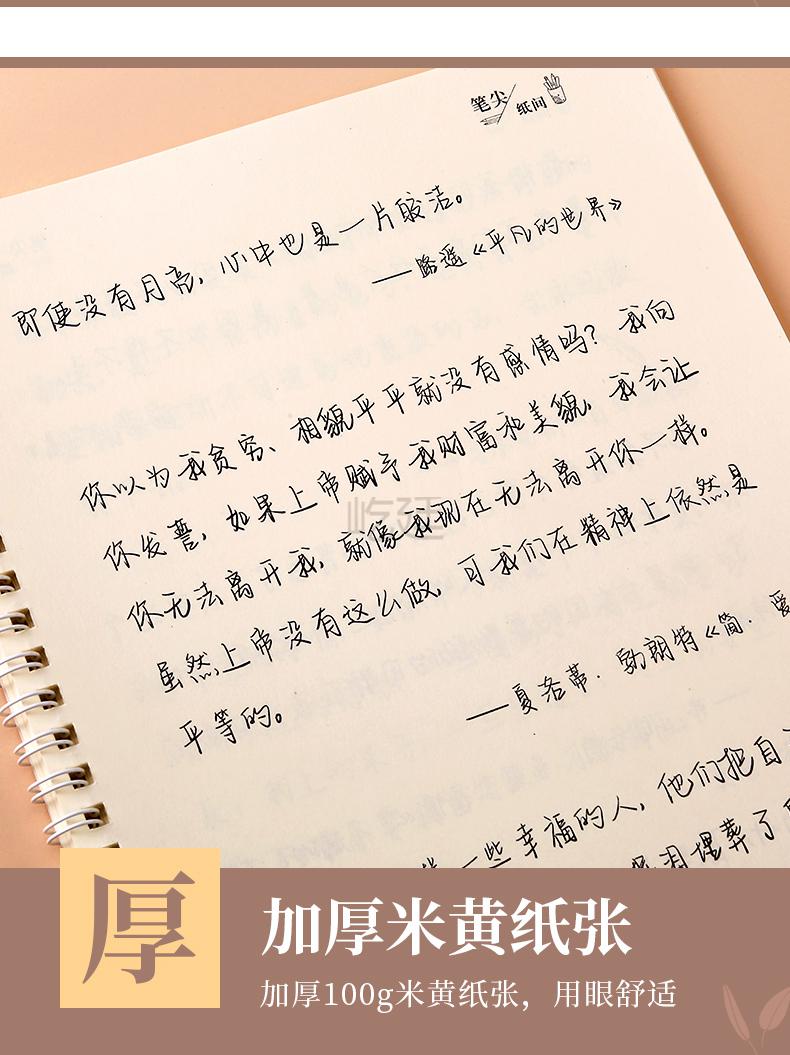 笔尖
纸间
即使没有月亮，心中也是一片皎洁。
——路遥《平凡的世界》
你以为我贫穷、相貌平平就没有感情吗？我向
你发誓，如果上帝赋予我财富和美貌，我会让
你无法离开我，就像我现在无法离开你一样。
虽然上帝没有这么做，可我们在精神上依然是
平等的。
——夏洛蒂·勃朗特《简·爱
一些幸福的人，他们把自
埋葬了
屹廷
厚
加厚米黄纸张
加厚100g米黄纸张，用眼舒适